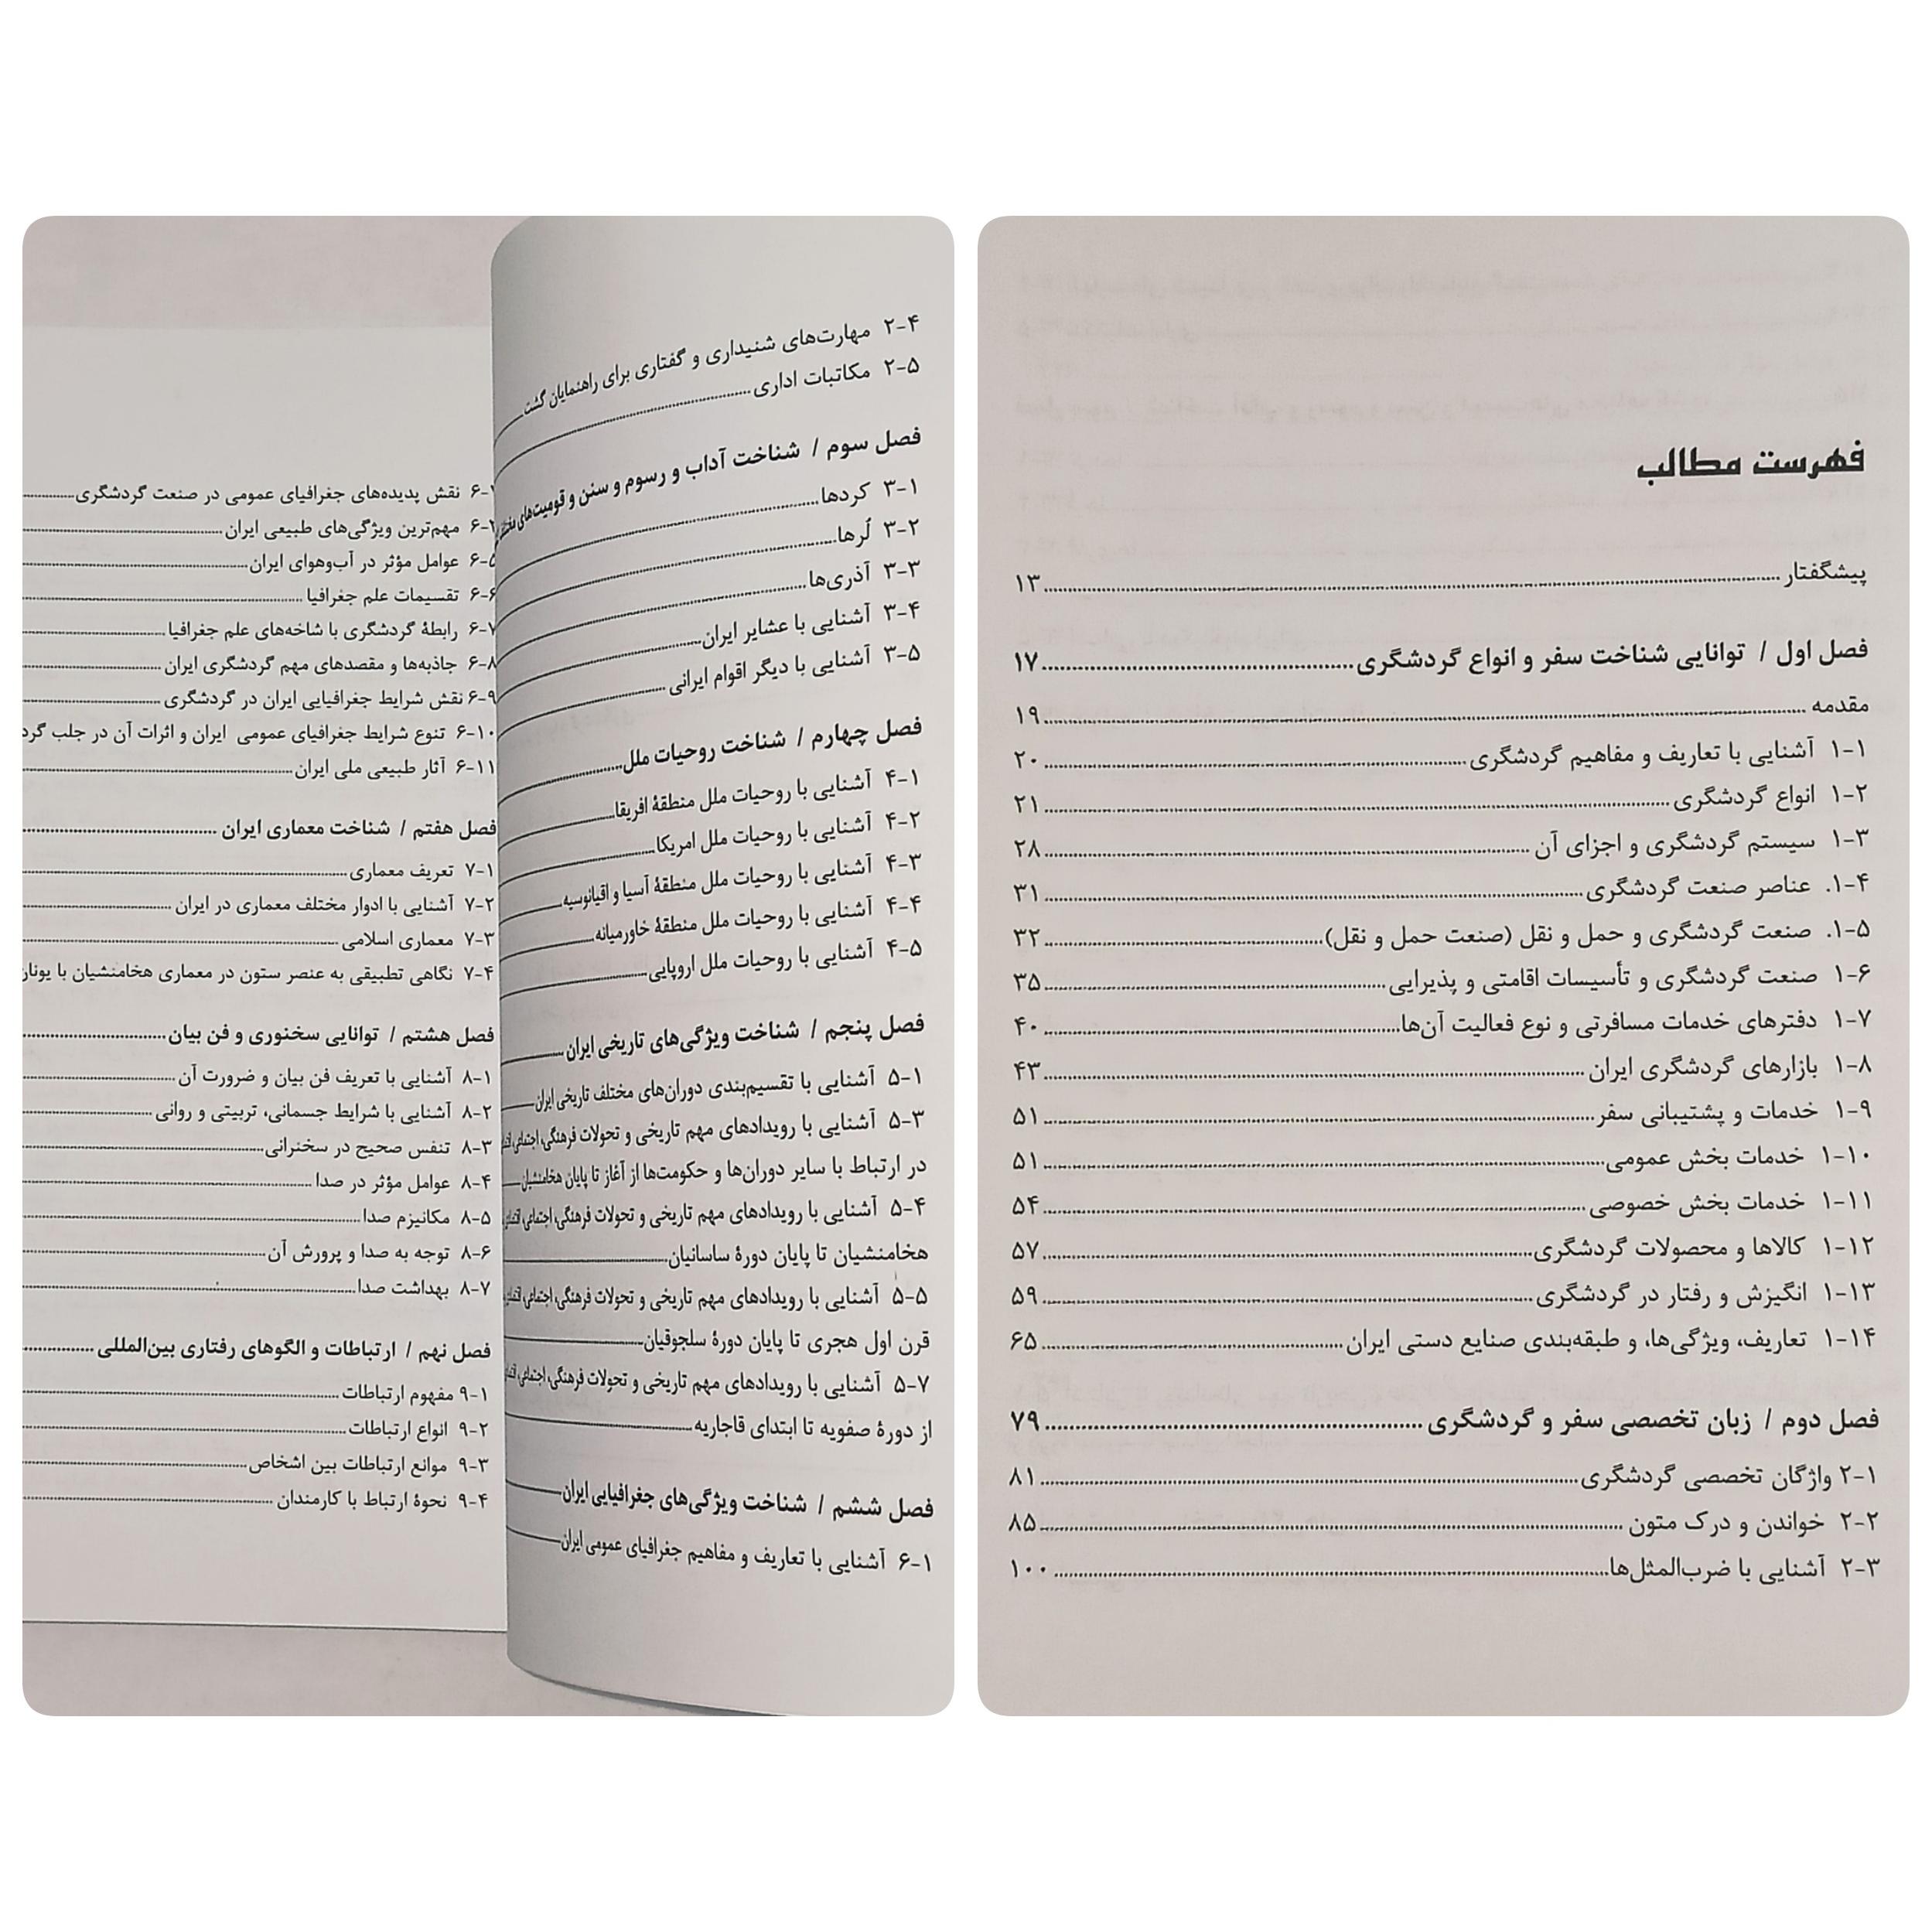 فهرست مطالب
پیشگفتار ۱۳
فصل اول / توانایی شناخت سفر و انواع گردشگری ۱۷
مقدمه ۱۹
۱-۱ آشنایی با تعاریف و مفاهیم گردشگری ۲۰
۱-۲ انواع گردشگری ۲۱
۱-۳ سیستم گردشگری و اجزای آن ۲۸
۱-۴. عناصر صنعت گردشگری ۳۱
۱-۵. صنعت گردشگری و حمل و نقل (صنعت حمل و نقل) ۳۲
۱-۶ صنعت گردشگری و تأسیسات اقامتی و پذیرایی ۳۵
۱-۷ دفترهای خدمات مسافرتی و نوع فعالیت آن‌ها ۴۰
۱-۸ بازارهای گردشگری ایران ۴۳
۱-۹ خدمات و پشتیبانی سفر ۵۱
۱-۱۰ خدمات بخش عمومی ۵۱
۱-۱۱ خدمات بخش خصوصی ۵۴
۱-۱۲ کالاها و محصولات گردشگری ۵۷
۱-۱۳ انگیزش و رفتار در گردشگری ۵۹
۱-۱۴ تعاریف، ویژگی‌ها، و طبقه‌بندی صنایع دستی ایران ۶۵
فصل دوم / زبان تخصصی سفر و گردشگری ۷۹
۲-۱ واژگان تخصصی گردشگری ۸۱
۲-۲ خواندن و درک متون ۸۵
۲-۳ آشنایی با ضرب‌المثل‌ها ۱۰۰
۲-۴ مهارت‌های شنیداری و گفتاری برای راهنمایان گشت
۲-۵ مکاتبات اداری
فصل سوم / شناخت آداب و رسوم و سنن و قومیت‌های مختلف
۳-۱ کردها
۳-۲ لُرها
۳-۳ آذری‌ها
۳-۴ آشنایی با عشایر ایران
۳-۵ آشنایی با دیگر اقوام ایرانی
فصل چهارم / شناخت روحیات ملل
۴-۱ آشنایی با روحیات ملل منطقهٔ افریقا
۴-۲ آشنایی با روحیات ملل امریکا
۴-۳ آشنایی با روحیات ملل منطقهٔ آسیا و اقیانوسیه
۴-۴ آشنایی با روحیات ملل منطقهٔ خاورمیانه
۴-۵ آشنایی با روحیات ملل اروپایی
فصل پنجم / شناخت ویژگی‌های تاریخی ایران
۵-۱ آشنایی با تقسیم‌بندی دوران‌های مختلف تاریخی ایران
۵-۳ آشنایی با رویدادهای مهم تاریخی و تحولات فرهنگی، اجتماعی،
در ارتباط با سایر دوران‌ها و حکومت‌ها از آغاز تا پایان هخامنشیان
۵-۴ آشنایی با رویدادهای مهم تاریخی و تحولات فرهنگی، اجتماعی،
هخامنشیان تا پایان دورهٔ ساسانیان
۵-۵ آشنایی با رویدادهای مهم تاریخی و تحولات فرهنگی، اجتماعی،
قرن اول هجری تا پایان دورهٔ سلجوقیان
۵-۷ آشنایی با رویدادهای مهم تاریخی و تحولات فرهنگی، اجتماعی،
از دورهٔ صفویه تا ابتدای قاجاریه
فصل ششم / شناخت ویژگی‌های جغرافیایی ایران
۶-۱ آشنایی با تعاریف و مفاهیم جغرافیای عمومی ایران
نقش پدیده‌های جغرافیای عمومی در صنعت گردشگری
مهم‌ترین ویژگی‌های طبیعی ایران
۶-۵ عوامل مؤثر در آب‌وهوای ایران
۶-۶ تقسیمات علم جغرافیا
۶-۷ رابطهٔ گردشگری با شاخه‌های علم جغرافیا
۶-۸ جاذبه‌ها و مقصدهای مهم گردشگری ایران
۶-۹ نقش شرایط جغرافیایی ایران در گردشگری
۶-۱۰ تنوع شرایط جغرافیای عمومی ایران و اثرات آن در جلب
۶-۱۱ آثار طبیعی ملی ایران
فصل هفتم / شناخت معماری ایران
۷-۱ تعریف معماری
۷-۲ آشنایی با ادوار مختلف معماری در ایران
۷-۳ معماری اسلامی
۷-۴ نگاهی تطبیقی به عنصر ستون در معماری هخامنشیان با یونان
فصل هشتم / توانایی سخنوری و فن بیان
۸-۱ آشنایی با تعریف فن بیان و ضرورت آن
۸-۲ آشنایی با شرایط جسمانی، تربیتی و روانی
۸-۳ تنفس صحیح در سخنرانی
۸-۴ عوامل مؤثر در صدا
۸-۵ مکانیزم صدا
۸-۶ توجه به صدا و پرورش آن
۸-۷ بهداشت صدا
فصل نهم / ارتباطات و الگوهای رفتاری بین‌المللی
۹-۱ مفهوم ارتباطات
۹-۲ انواع ارتباطات
۹-۳ موانع ارتباطات بین اشخاص
۹-۴ نحوهٔ ارتباط با کارمندان